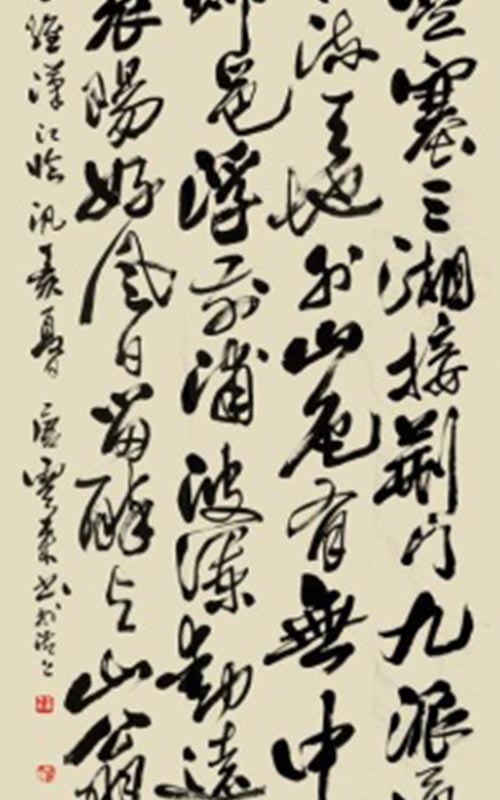 楚塞三湘接荆门九派
流天地外山色有無中
郡邑浮前浦波澜動遠
襄陽好風日留醉与山翁
維漢江临汎